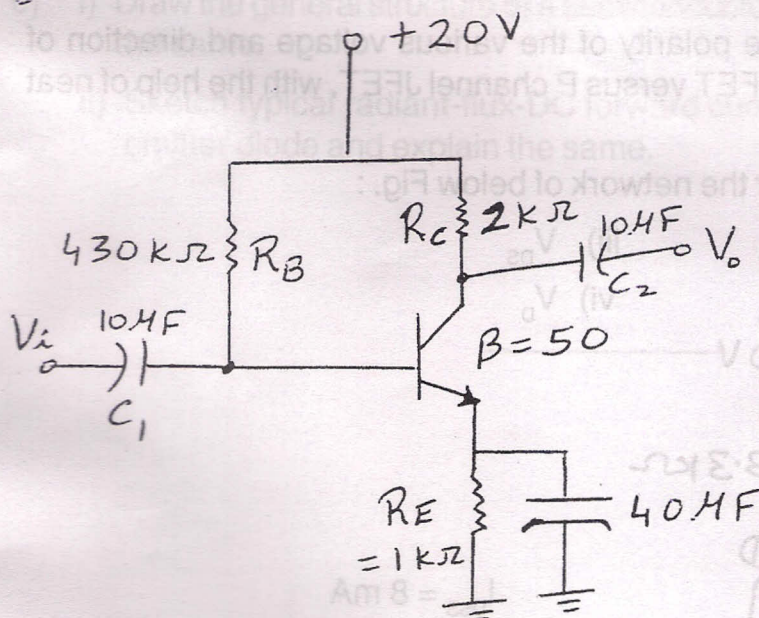 +20V
430kΩ RB
RC 2kΩ
10μF
Vo
C2
Vi
10μF
C1
β=50
RE
=1kΩ
40μF